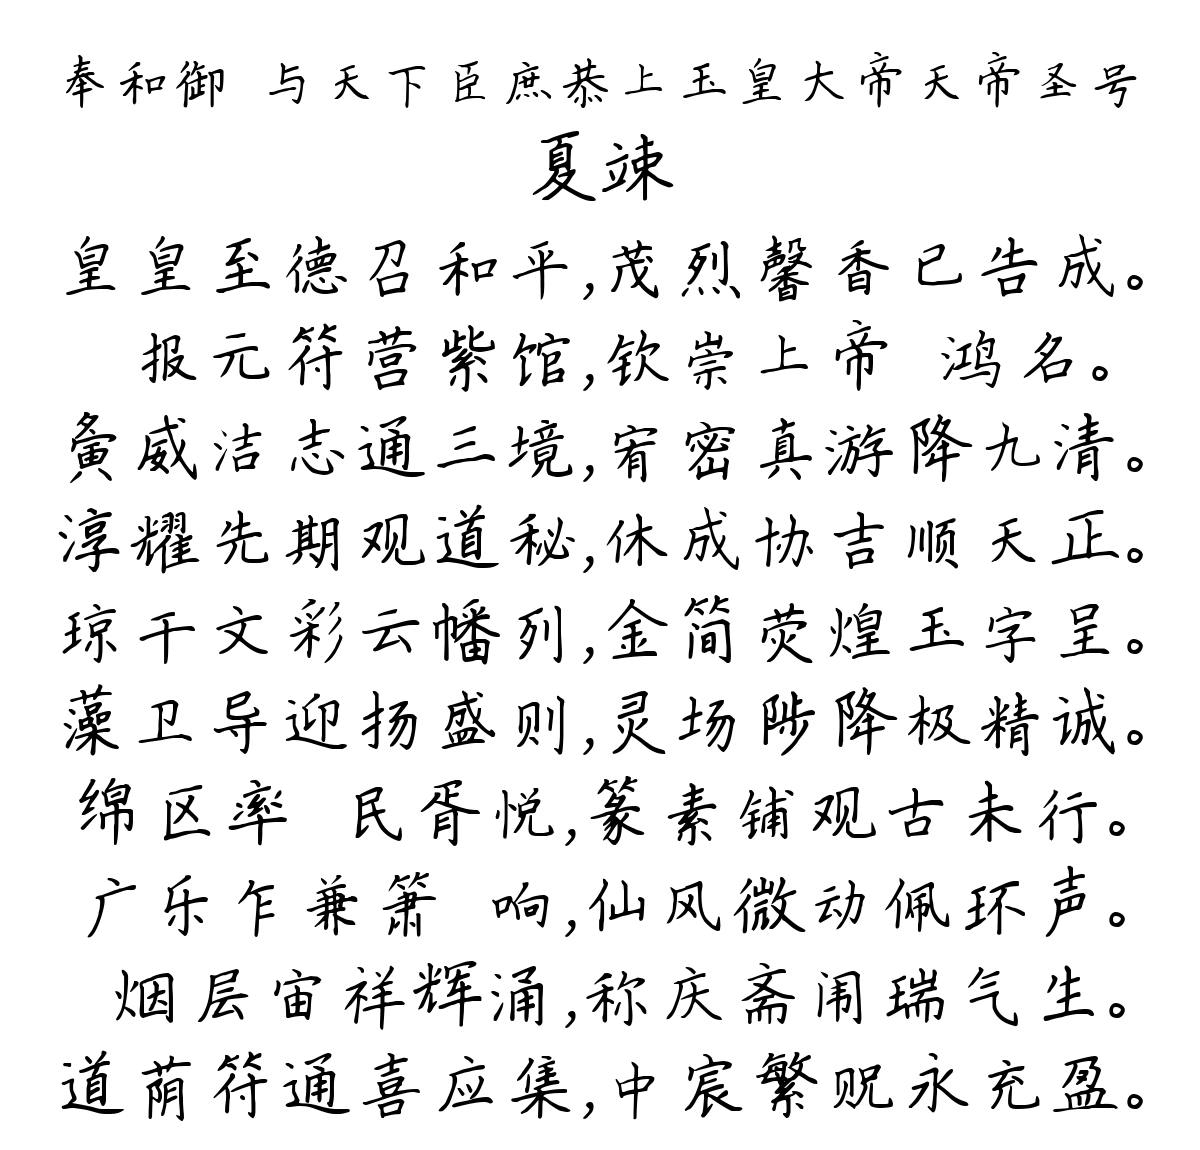 奉和御 与天下臣庶恭上玉皇大帝天帝圣号
夏竦
皇皇至德召和平,茂烈馨香已告成。
报元符营紫馆,钦崇上帝 鸿名。
夤威洁志通三境,宥密真游降九清。
淳耀先期观道秘,休成协吉顺天正。
琼干文彩云幡列,金简荧煌玉字呈。
藻卫导迎扬盛则,灵场陟降极精诚。
绵区率 民胥悦,篆素铺观古未行。
广乐乍兼箫 响,仙风微动佩环声。
烟层宙祥辉涌,称庆斋闱瑞气生。
道荫符通喜应集,中宸繁贶永充盈。